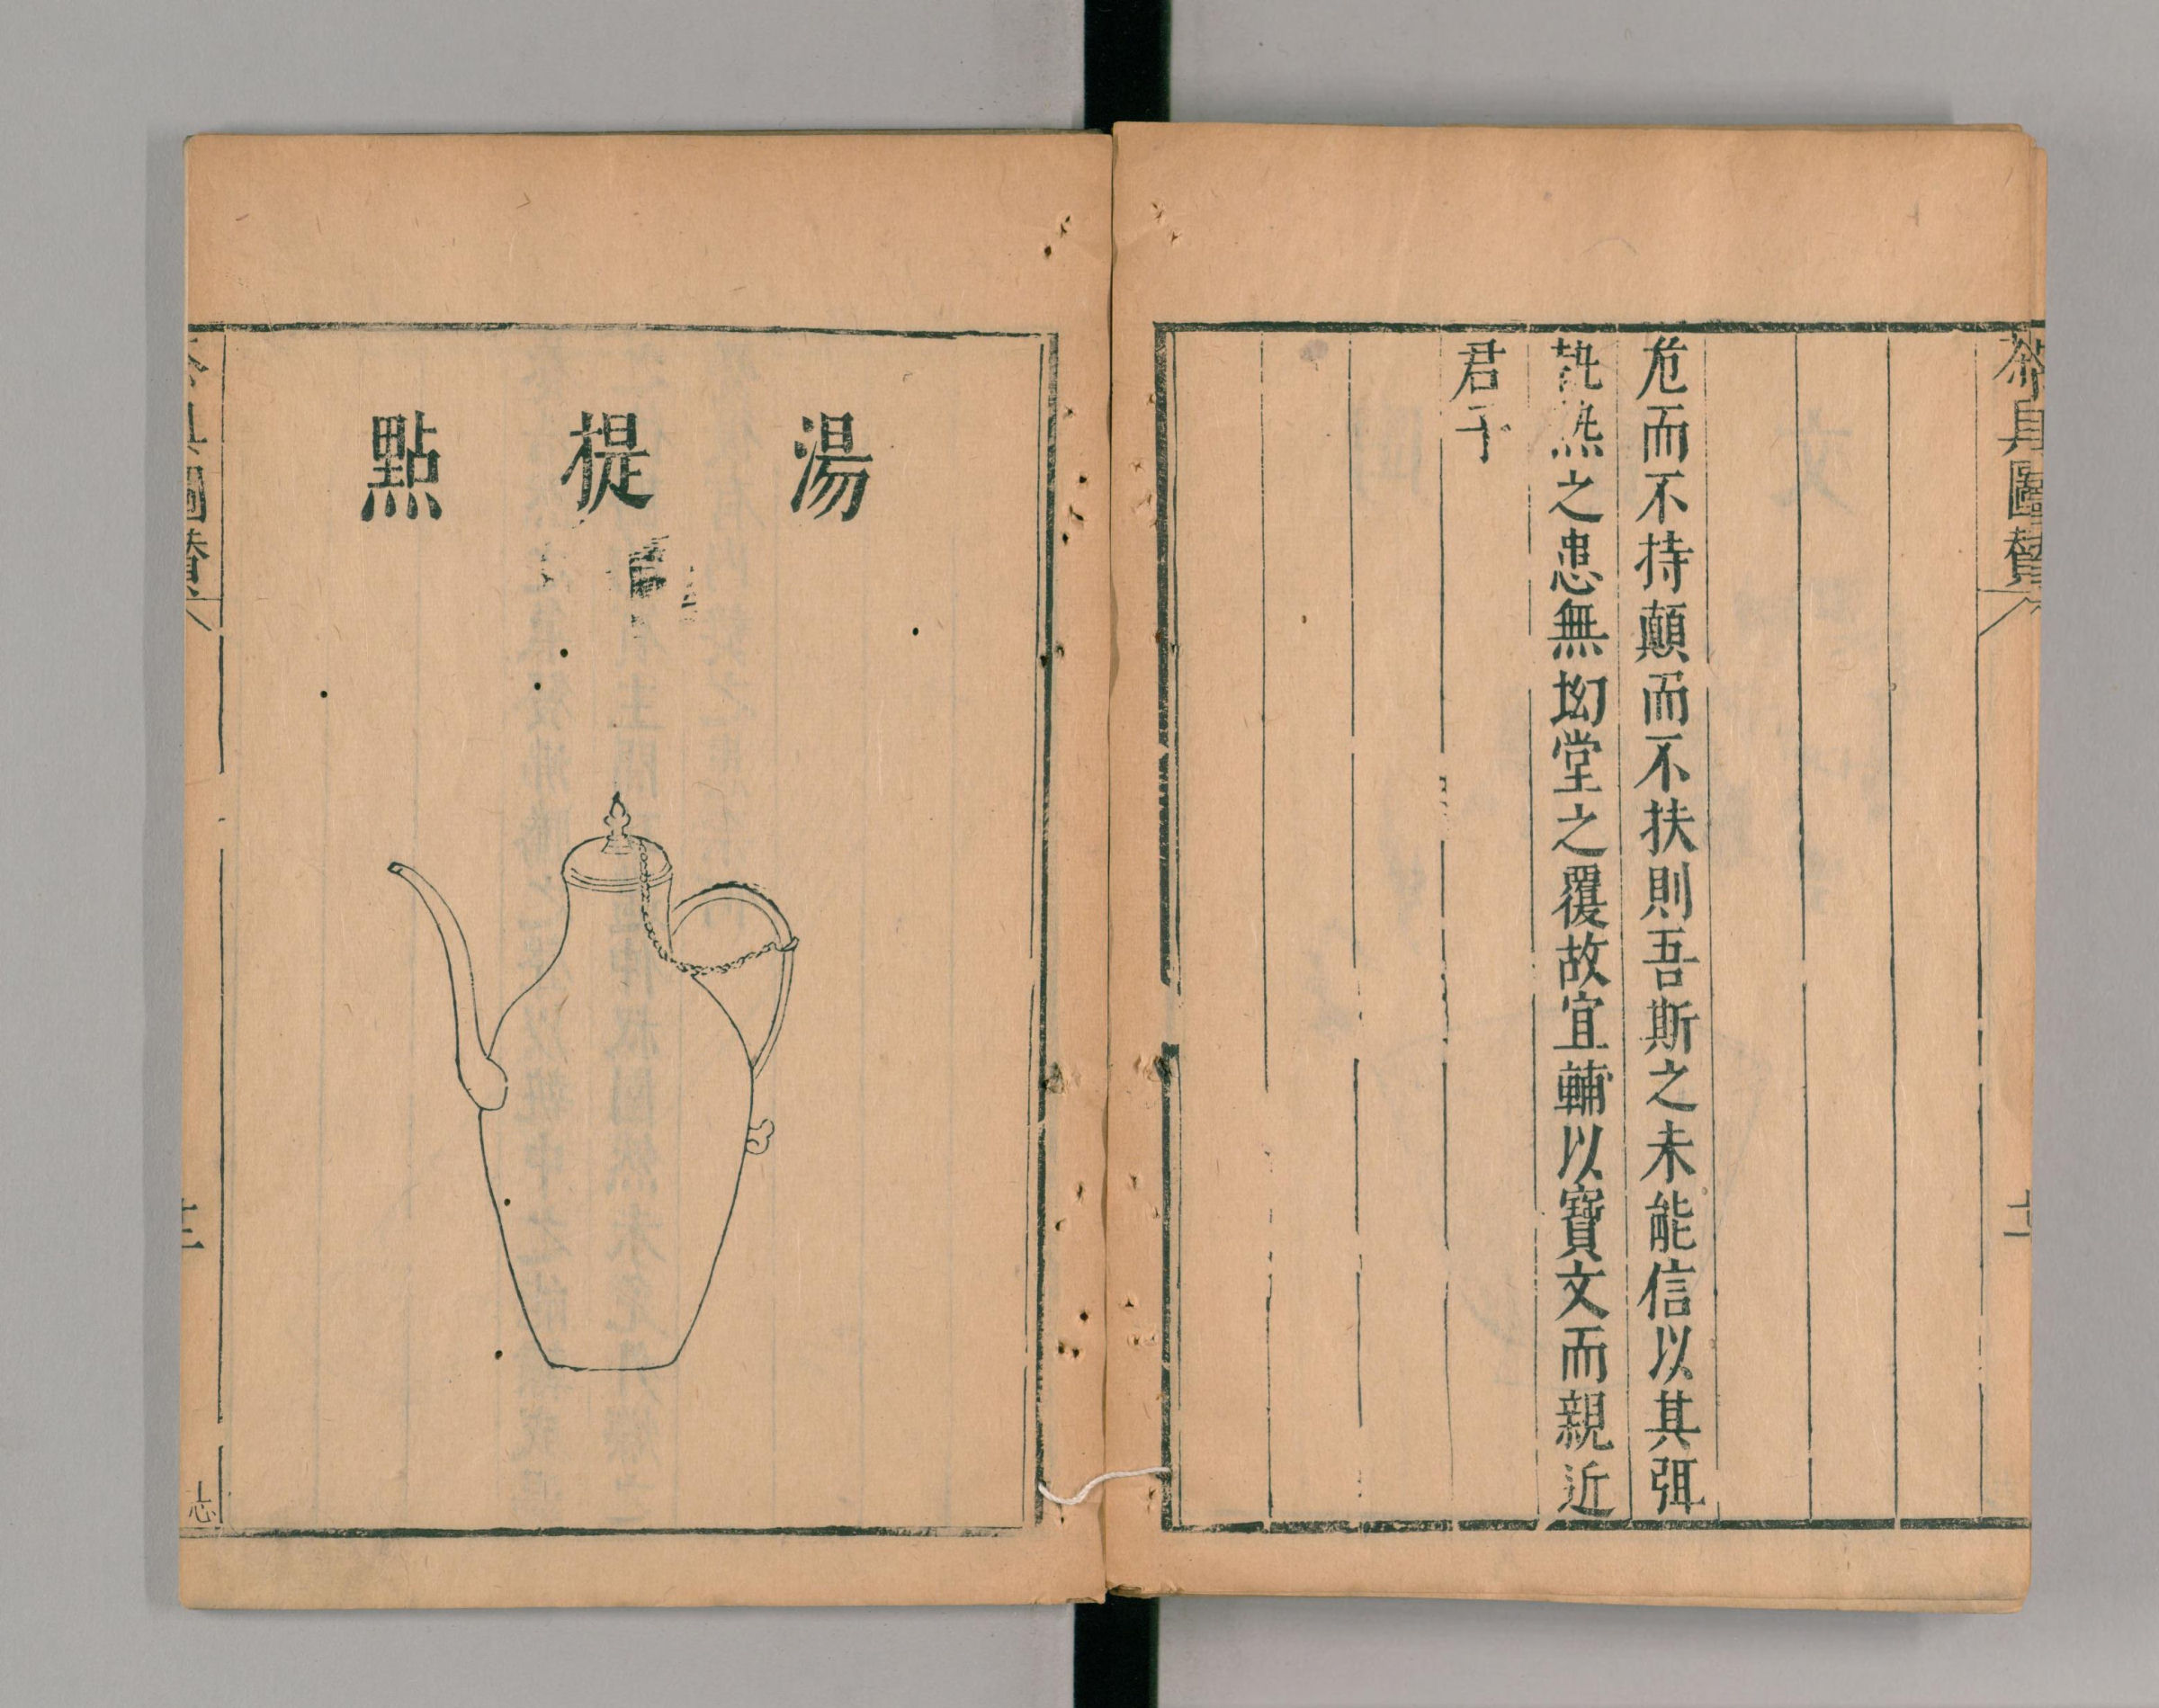 茶具圖贊
危而不持顛而不扶則吾斯之未能信以其弭
執熱之患無坳堂之覆故宜輔以寶文而親近
君子
十一
湯提點